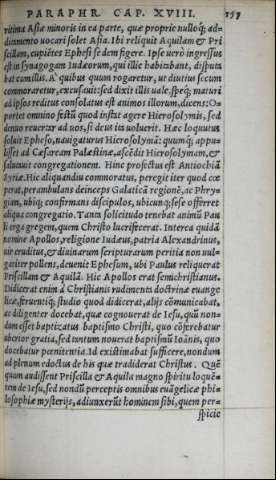 PARAPHR. CAP. XVIII.
ritima Asia minoris in ea parte, quæ proprie nulloq́; ad-
diumento uocari solet Asia. Ibi reliquit Aquilam & Pri
scillam, cupiẽtes Ephesi sedem figere. Ipse uero ingressus
est in synagogam Iudæorum, qui illic habitabant, disputa
bat cum illis. A quibus quum rogaretur, ut diutius secum
commoraretur, excusauit: sed dixit illis uale, speq́; maturi
ad ipsos reditus consolatus est animos illorum, dicens: O-
portet omnino festũ quod instat agere Hierosolymis, sed
denuo reuertar ad uos, si deus ita uoluerit. Hæc loquutus
soluit Epheso, nauigaturus Hierosolymã: quumq́; appu-
lisset ad Cæsaream Palæstinæ, ascẽdit Hierosolymam, &
salutauit congregationem. Hinc profectus est Antiochiã
Syriæ. Hic aliquandiu commoratus, peregit iter quod cœ
perat, perambulans deinceps Galaticã regionẽ, ac Phry-
giam, ubiq; confirmans discipulos, ubicunq; sese offerret
aliqua congregatio. Tanta solicitudo tenebat animũ Pau
li erga gregem, quem Christo lucrifecerat. Interea quidã
nomine Apollos, religione Iudæus, patria Alexandrinus,
uir eruditus, & diuinarum scripturarum peritia non uul-
gariter pollens, deuenit Ephesum, ubi Paulus reliquerat
Priscillam & Aquilã. Hic Apollos erat semichristianus.
Didicerat enim à Christianis rudimenta doctrinæ euange
licæ, feruentiq; studio quod didicerat, alijs cõmunicabat,
ac diligenter docebat, quæ cognouerat de Iesu, quũ non-
dum esset baptizatus baptismo Christi, quo cõferebatur
uberior gratia, sed tantum nouerat baptismũ Ioãnis, quo
docebatur pœnitentia. Id existimabat sufficere, nondum
ad plenum edoctus de his quæ tradiderat Christus. Quẽ
quum audissent Priscilla & Aquila magno spiritu loquẽ-
tem de Iesu, sed nondũ perceptis omnibus euãgelicæ phi-
losophiæ mysterijs, adiunxerũt hominem sibi, quem per-
spicie